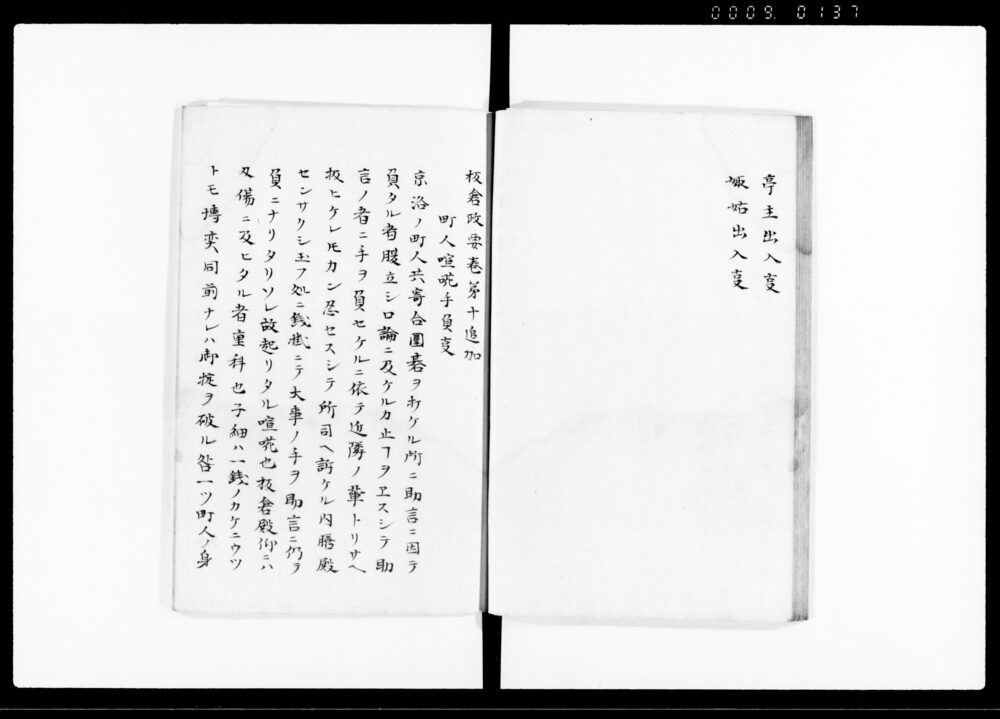 0009 0137
亭主出入叓
嫉妬出入叓
板倉政要巻第十追加
町人喧嘩手負叓
京洛ノ町人共寄合圍碁ヲ打ケル所ニ助言ニ因テ
負タル者腹立シロ論ニ及ケルカ止ヿヲヱスシテ助
言ノ者ニ手ヲ負セケルニ依テ近隣ノ輩トリサヘ
扱ヒケレ𪜈カン忍セスシテ所司ヘ訴ケル内膳殿
センサクシ玉フ処ニ銭掛ニテ大事ノ手ヲ助言ニ仍テ
負ニナリタリソレ故起リタル喧嘩也板倉殿仰ニハ
刄傷ニ及ヒタル者重科也子細ハ一銭ノカケニウツ
トモ博奕同前ナレハ御掟ヲ破ル咎一ツ町人ノ身